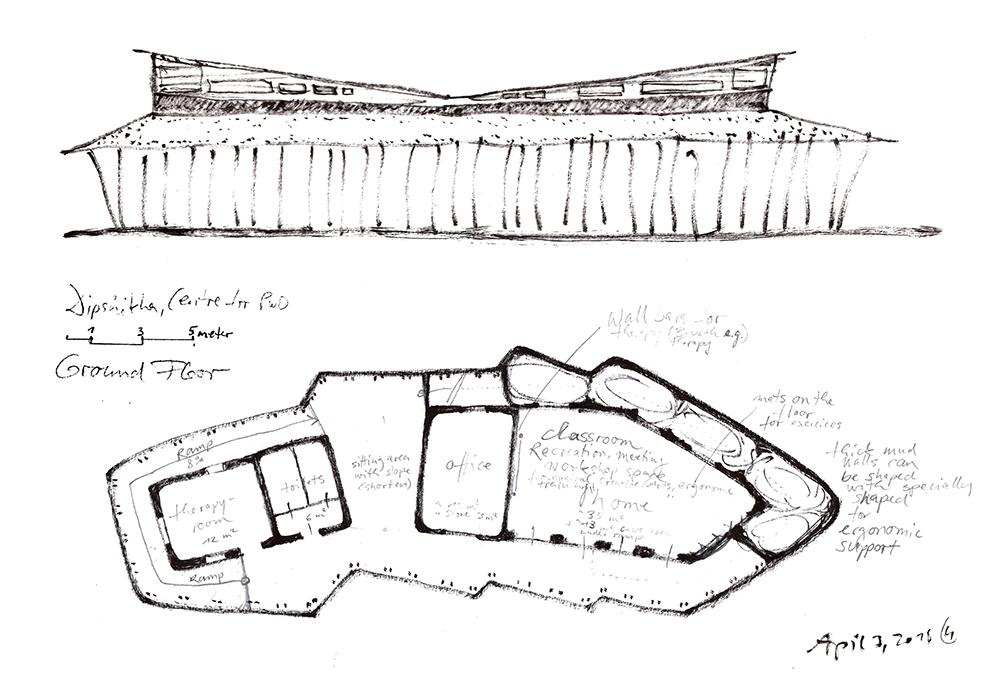 Dipshikha, Centre for PwD
1 3 5 meter
Ground Floor
Wall bars for
therapy (Bounth e.g.)
therapy
mats on the
floor
for exercices
thick mud
walls can
be shaped
with specially
shaped
for
ergonomic
support
Ramp
8%
therapy-
room
12 m²
toilets
6 m²
Ramp
sitting area
with slope
(shorter)
office
classroom
Recreation, meeting
workshop space
ergonomic
training
home
35 m²
April 3, 2018 (4)